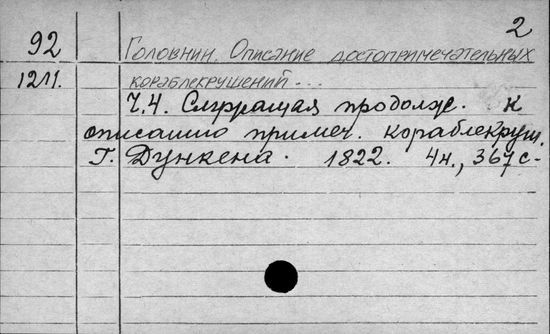 2
92 Головнин. Описание достопримечательных
1211. кораблекрушений...
Ч.4. Служащая продолж. к
описанию примеч. кораблекруш.
Г. Дункена. 1822. 4н., 367 с.